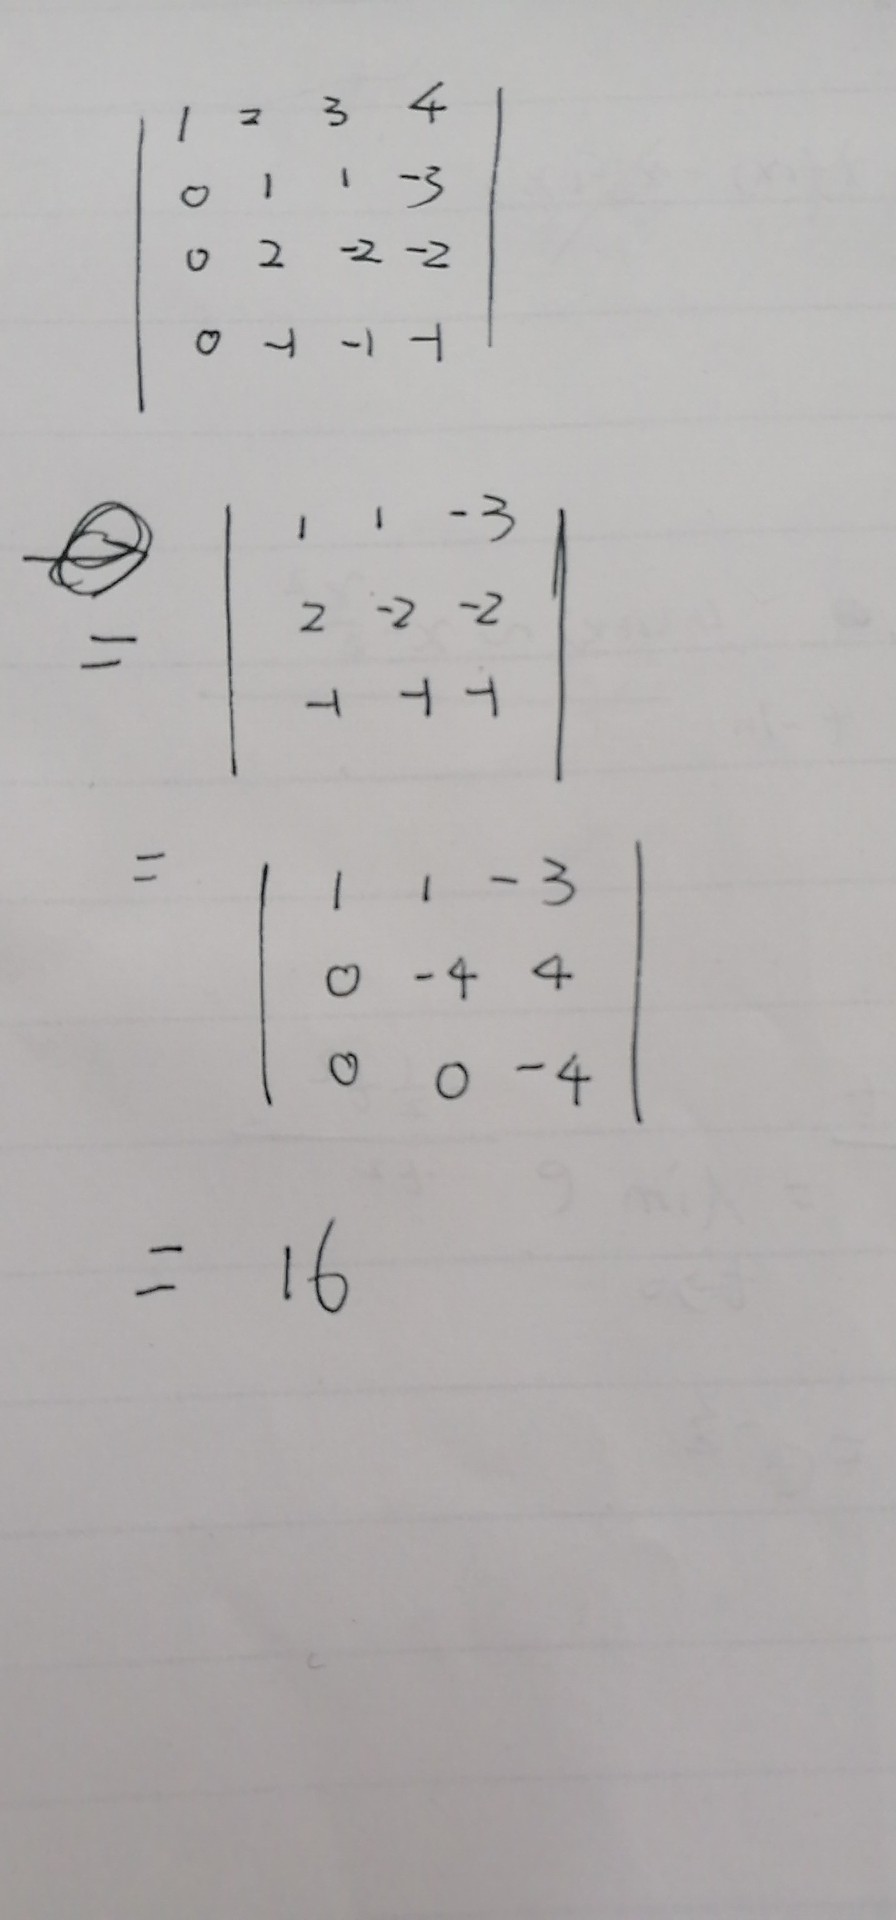 | 1 2 3 4 |
| 0 1 1 -3 |
| 0 2 -2 -2 |
| 0 -1 -1 -1 |
| 1 1 -3 |
= | 2 -2 -2 |
| -1 -1 -1 |
= | 1 1 -3 |
| 0 -4 4 |
| 0 0 -4 |
= 16